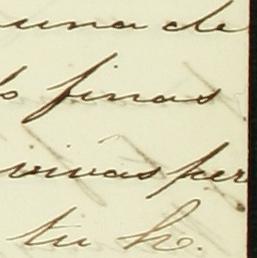 una de
finas
vivas per
tu h.